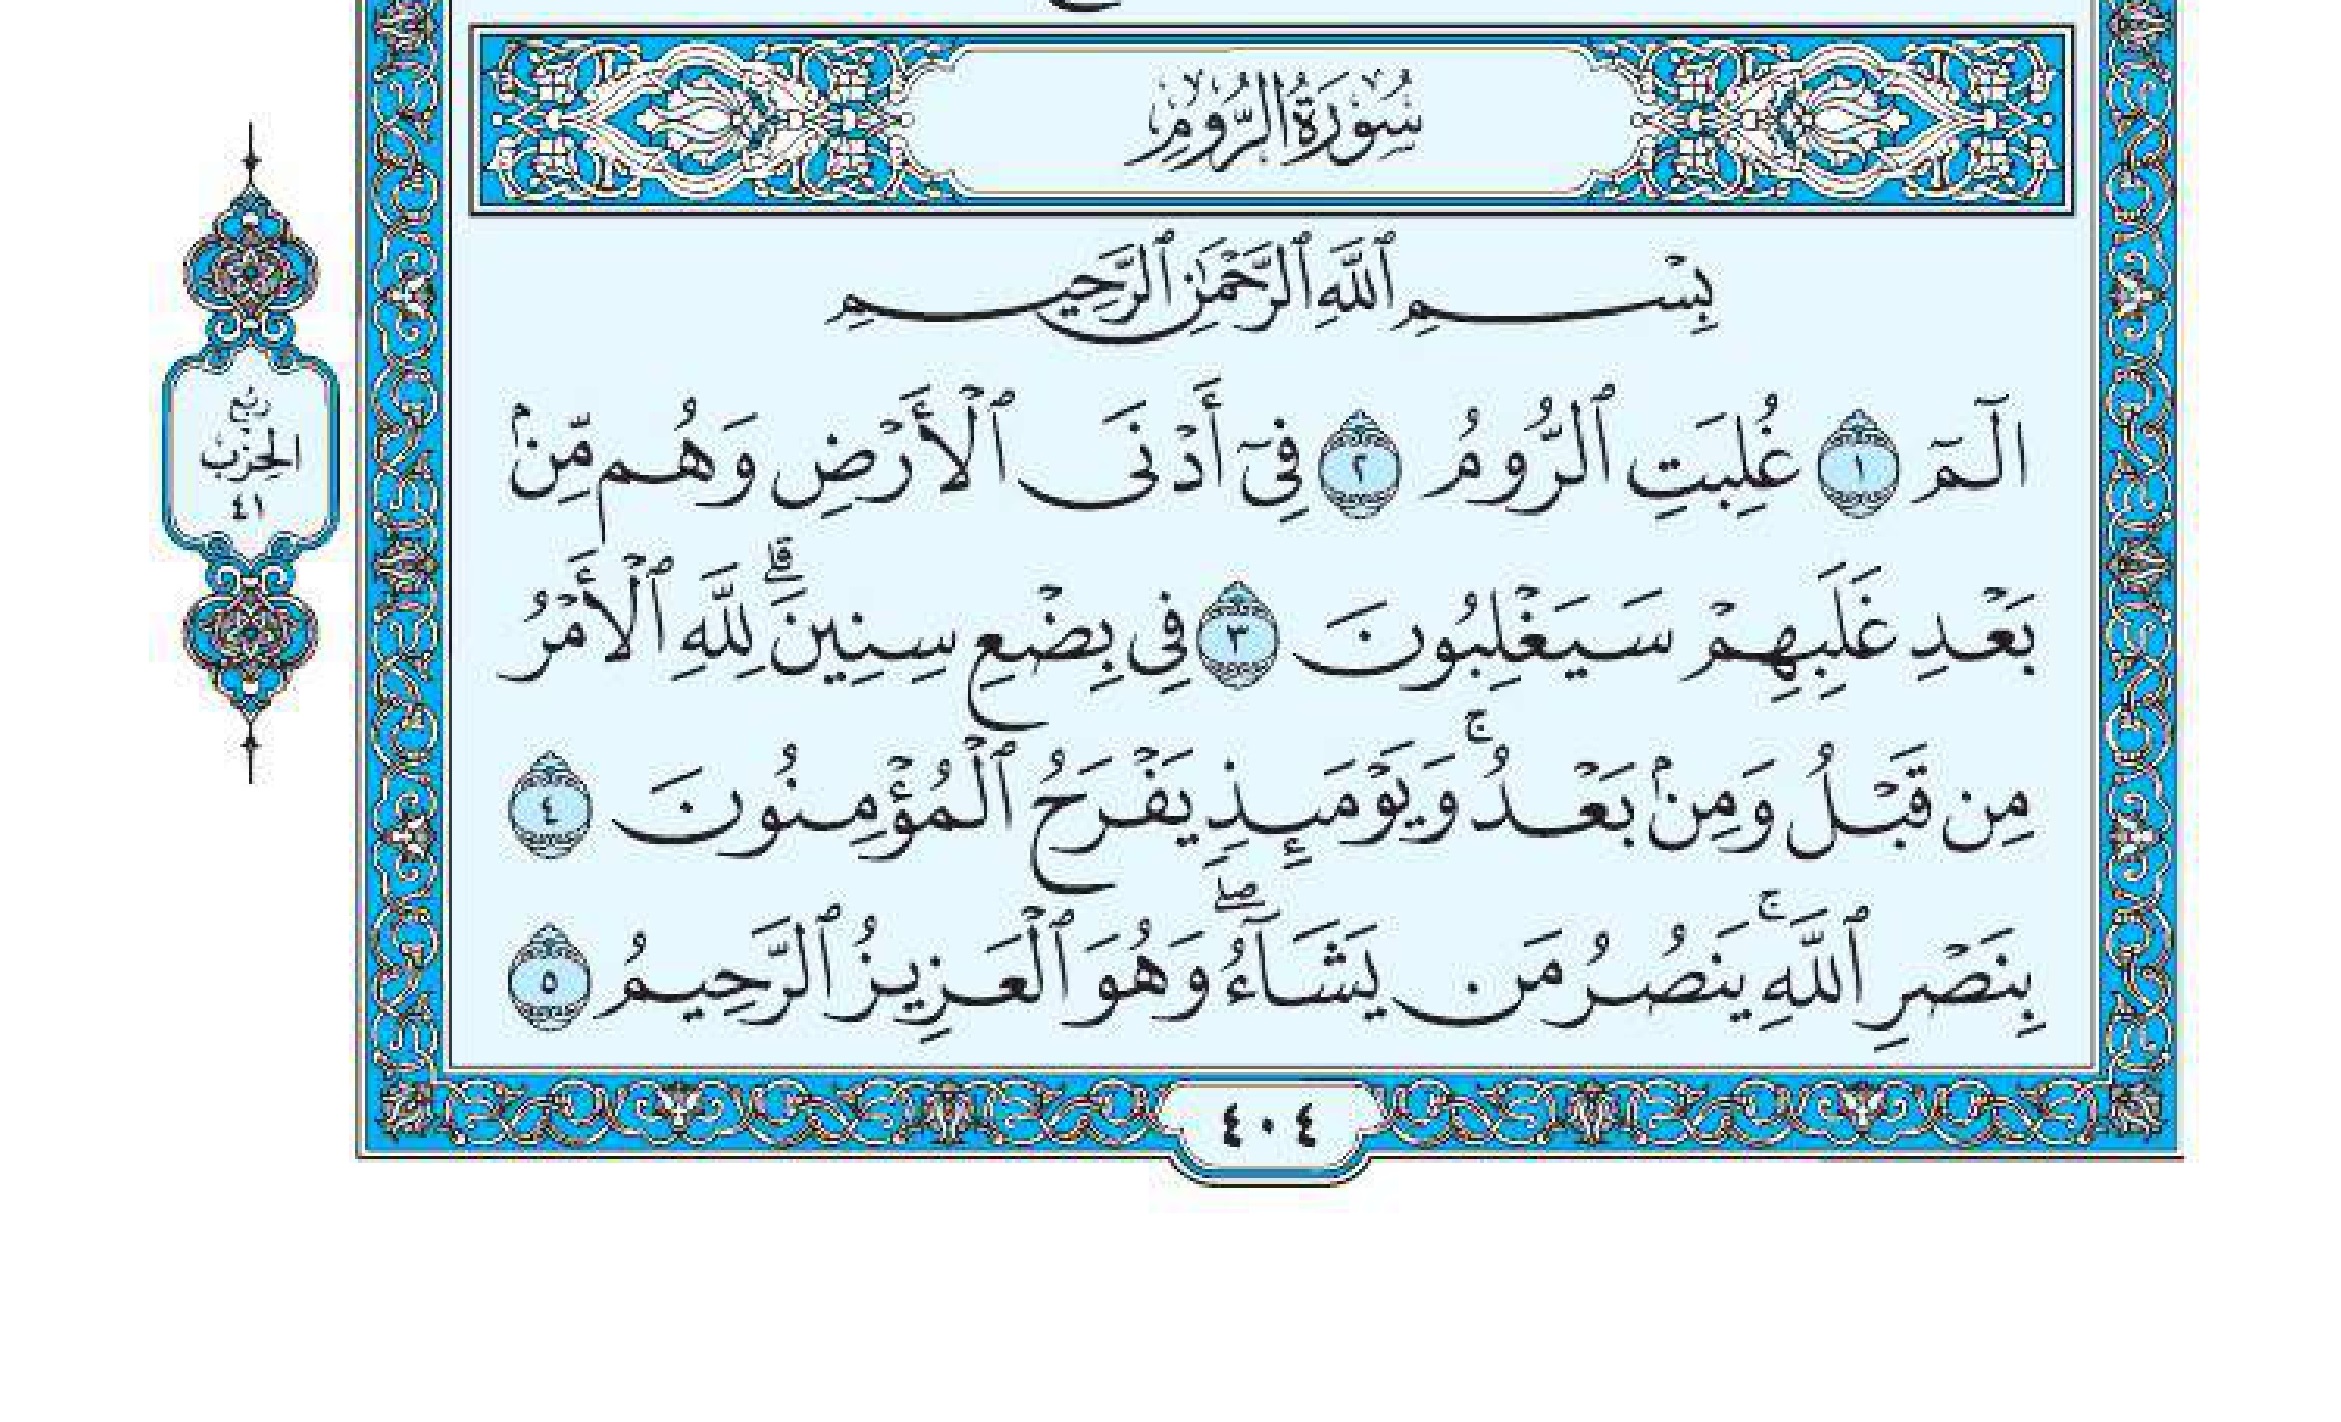 سُورَةُ الرُّومِ
بِسْمِ ٱللَّهِ ٱلرَّحْمَٰنِ ٱلرَّحِيمِ
الٓمٓ ١ غُلِبَتِ ٱلرُّومُ ٢ فِىٓ أَدْنَى ٱلْأَرْضِ وَهُم مِّنۢ
بَعْدِ غَلَبِهِمْ سَيَغْلِبُونَ ٣ فِى بِضْعِ سِنِينَ ۗ لِلَّهِ ٱلْأَمْرُ
مِن قَبْلُ وَمِنۢ بَعْدُ ۚ وَيَوْمَئِذٍ يَفْرَحُ ٱلْمُؤْمِنُونَ ٤
بِنَصْرِ ٱللَّهِ ۚ يَنصُرُ مَن يَشَآءُ ۖ وَهُوَ ٱلْعَزِيزُ ٱلرَّحِيمُ ٥
ربع
الحزب
٤١
٤٠٤